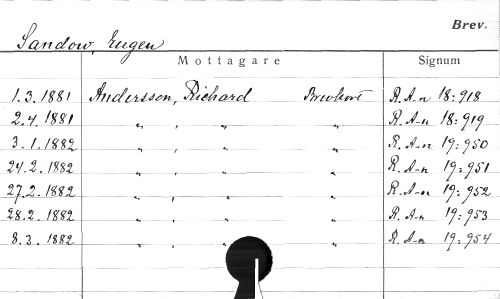 Brev.
Sandow, Eugen
Mottagare Signum
1.3.1881 Andersson, Richard Brevkort R.A-n 18:918
2.4.1881 " , " " R.A-n 18:919
3.1.1882 " , " " R.A-n 19:950
24.2.1882 " , " " R.A-n 19:951
27.2.1882 " , " " R.A-n 19:952
28.2.1882 " , " " R.A-n 19:953
8.3.1882 " , " " R.A-n 19:954